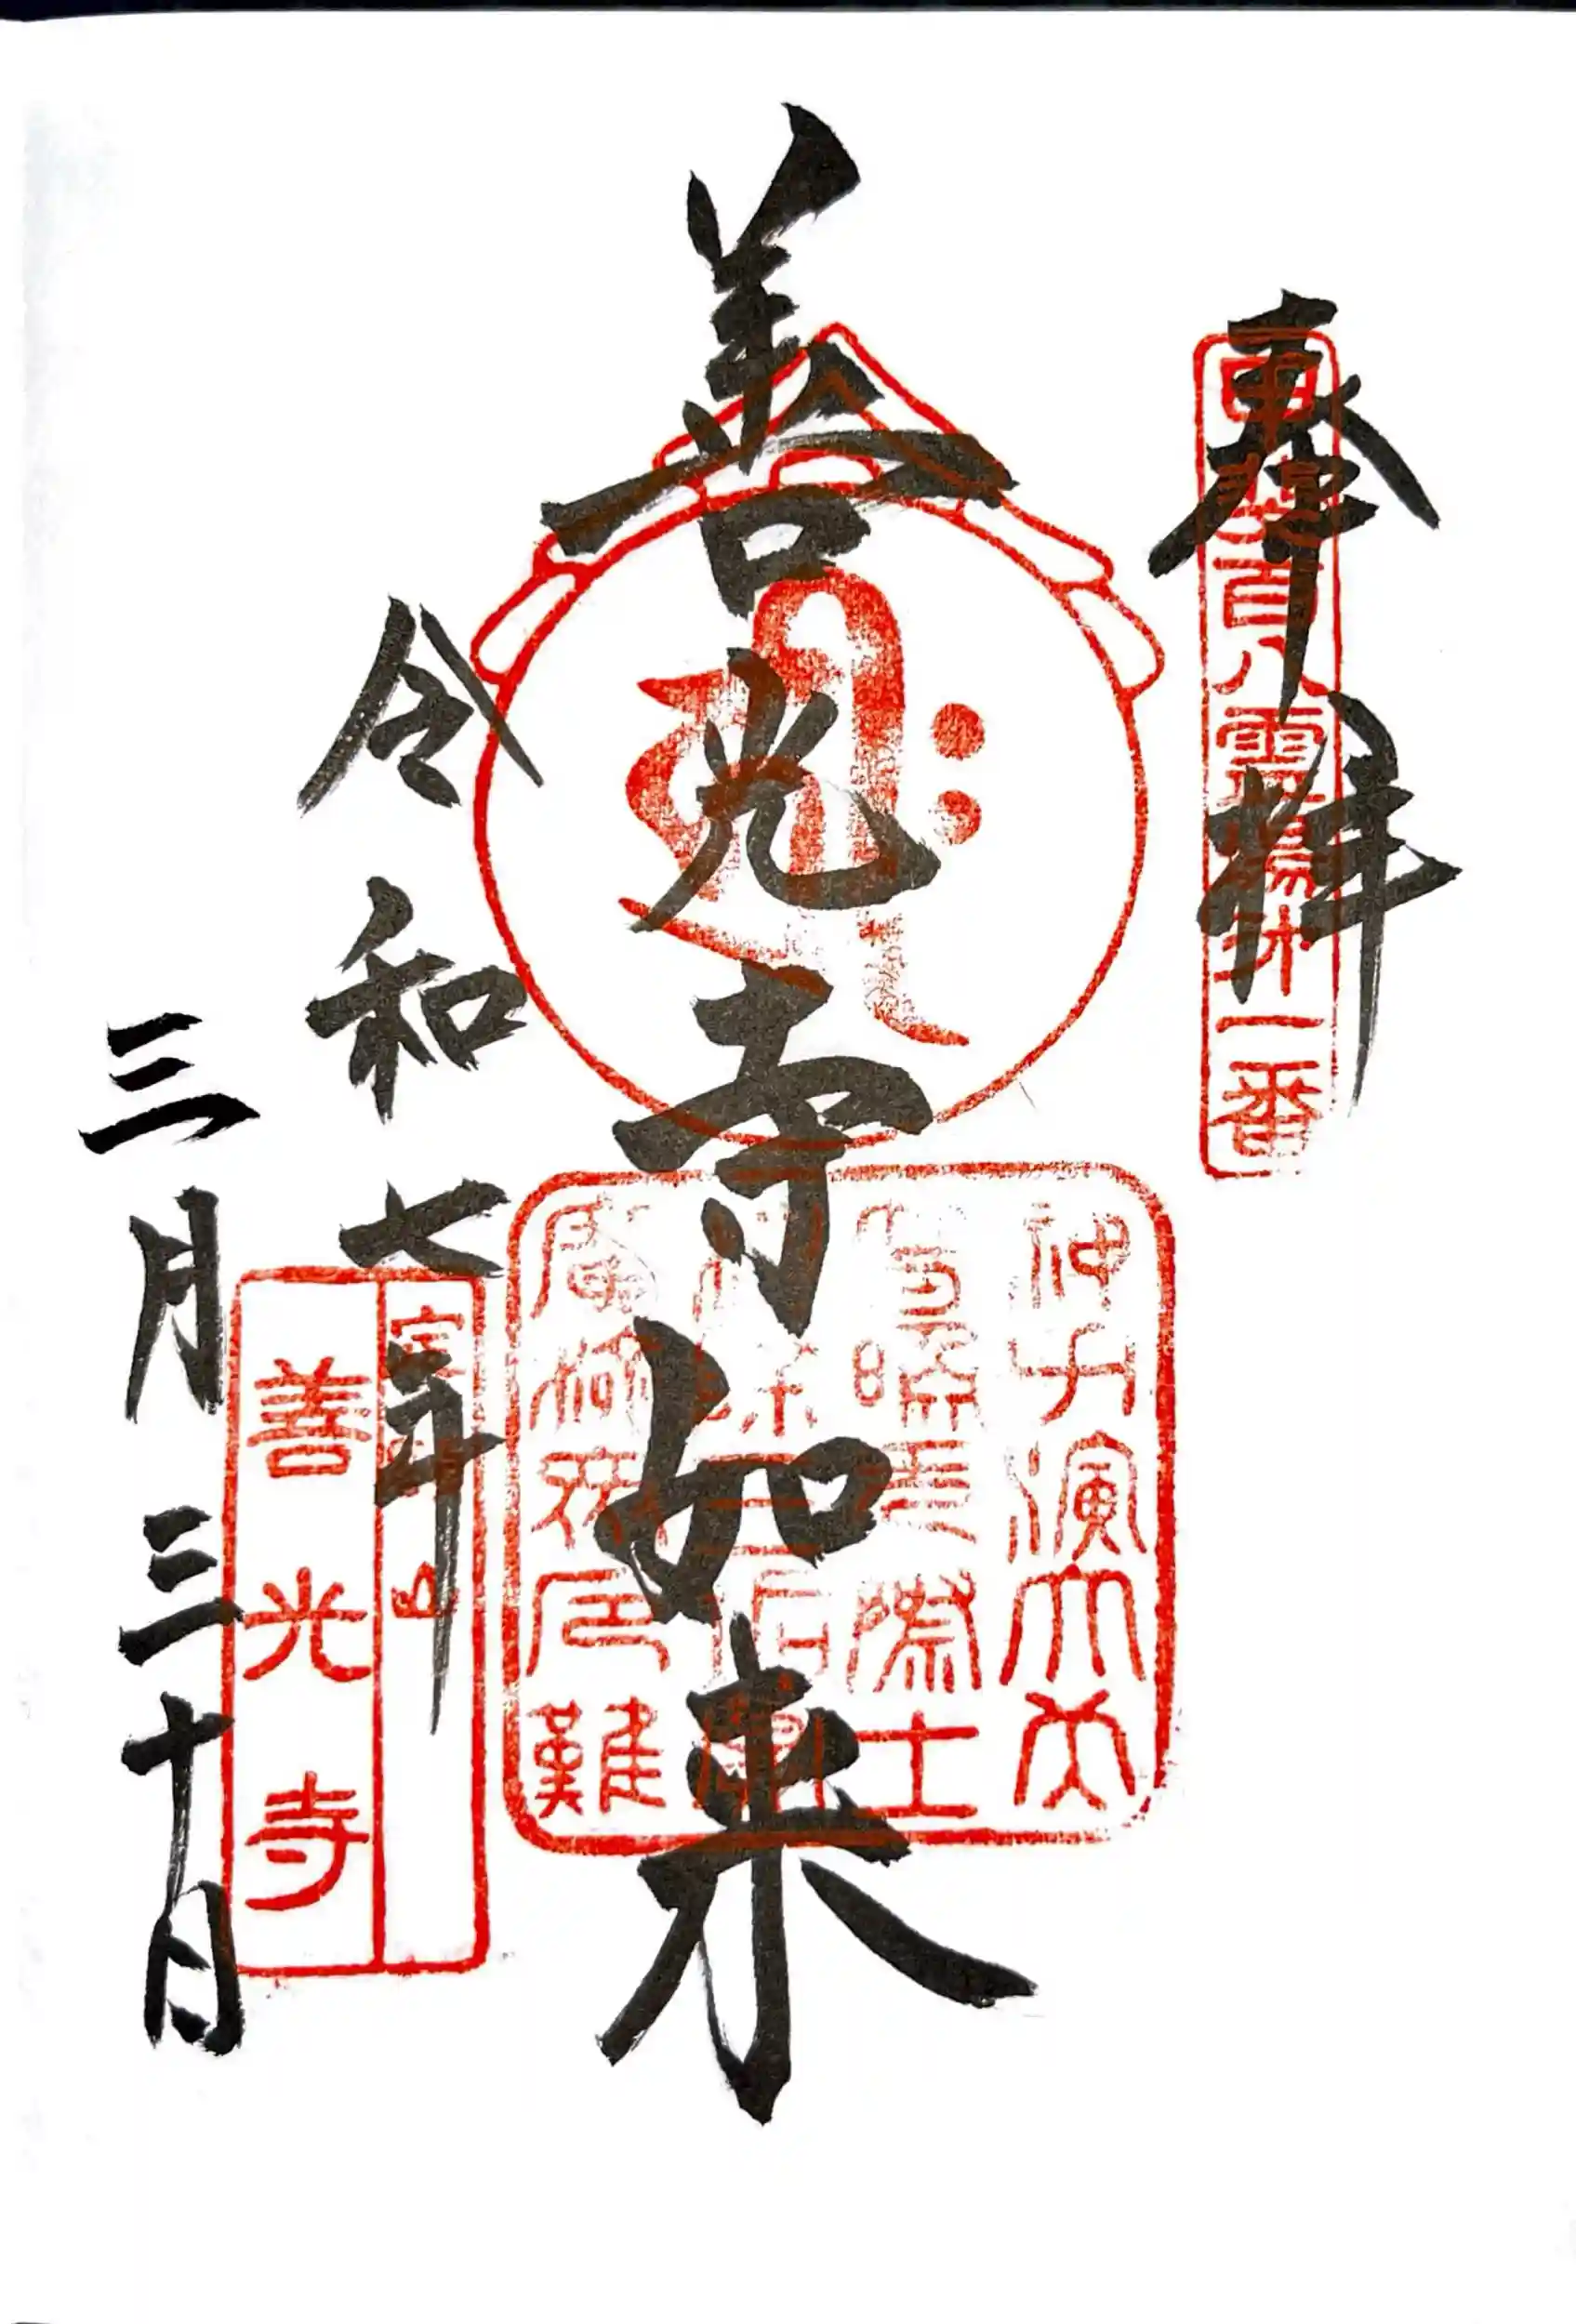 奉拝
甲斐百八霊場第一番
善光寺如来
神力演大光
普照無際土
消除三垢冥
廣濟衆厄難
令和七年
定額山
善光寺
三月三十日